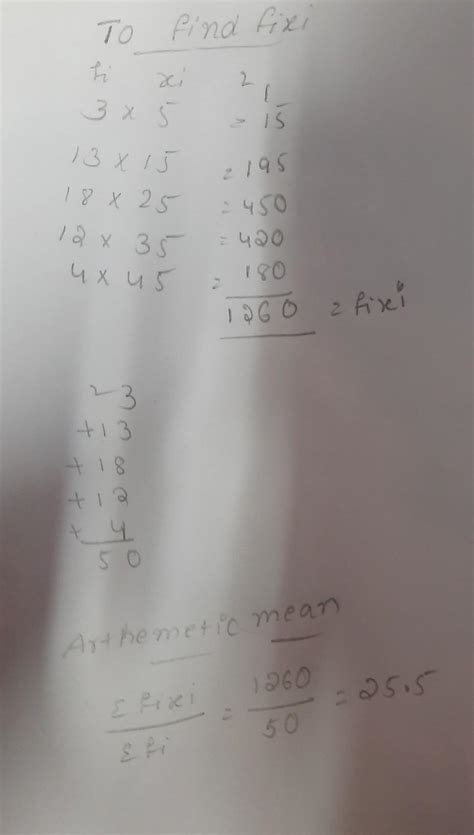 To find fixi
fi xi 2 1
3 × 5 = 15
13 × 15 = 195
18 × 25 = 450
12 × 35 = 420
4 × 45 = 180
1260 = fixi
2 3
+13
+18
+12
+ 4
50
Arthemetic mean
Σfixi/Σfi = 1260/50 = 25.5